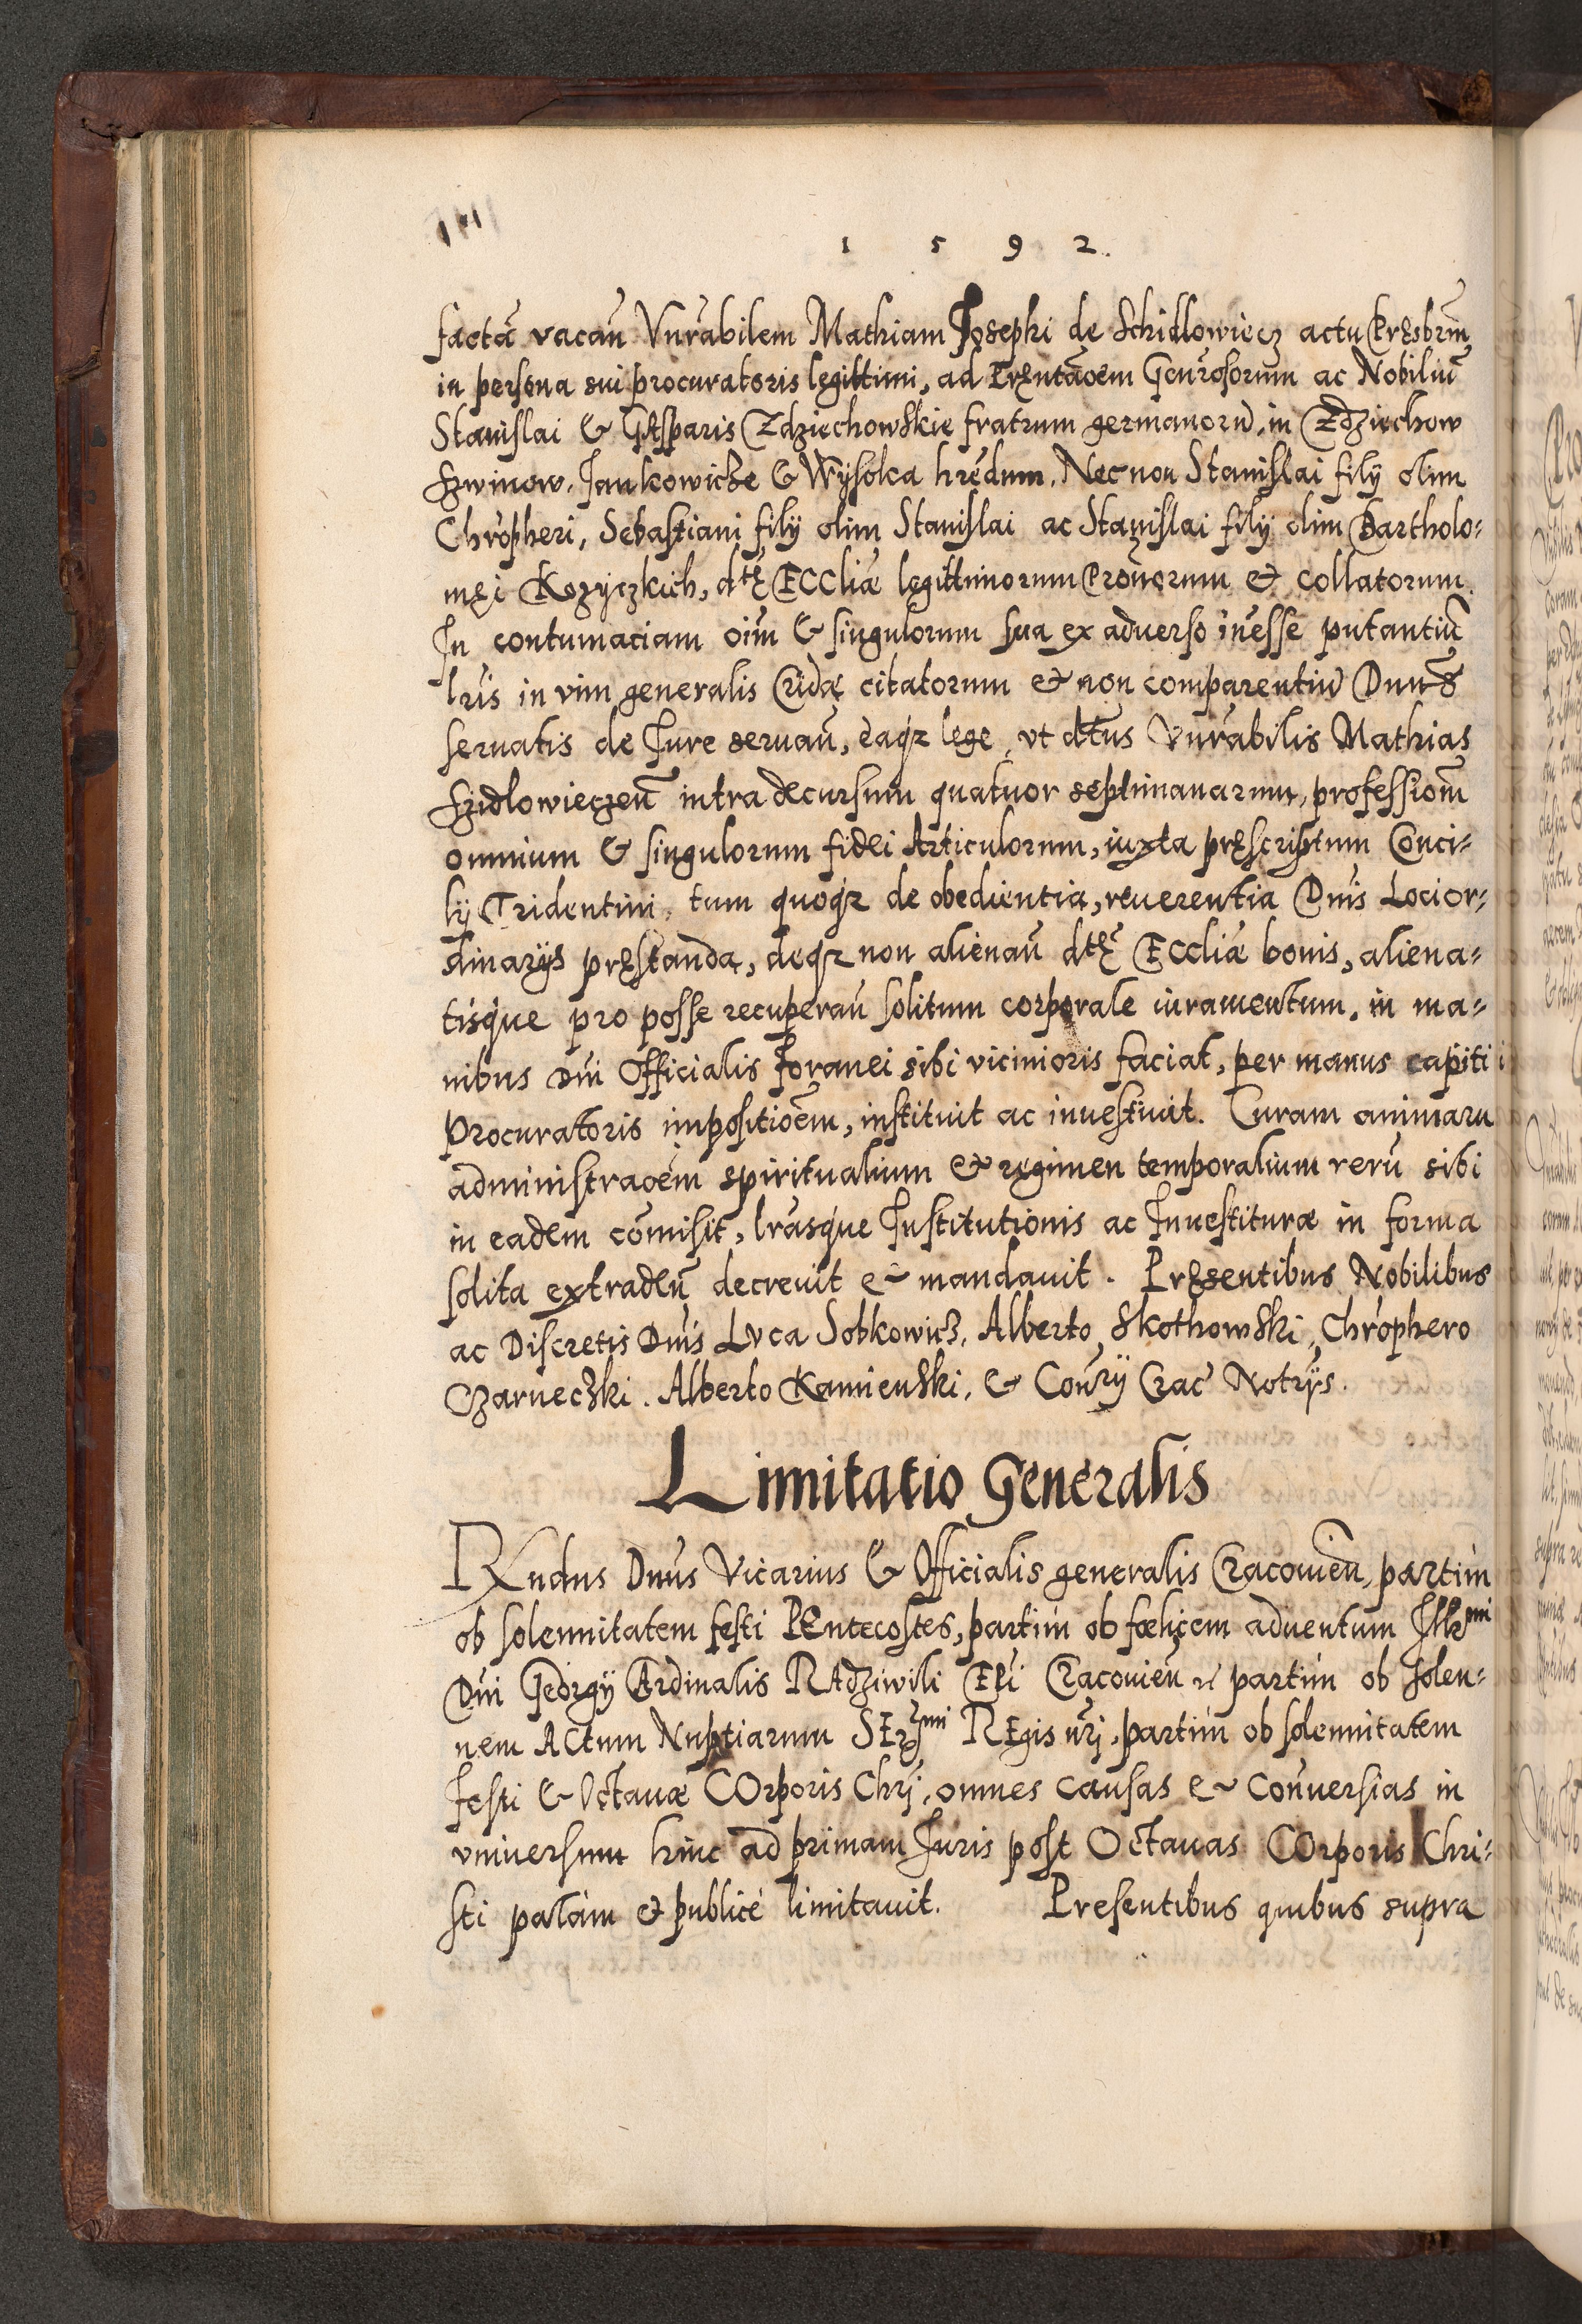 1 5 9 2.
factā vacan̄ Vnrabilem Mathiam Josephi de Schidlowiecz actu Pręsbrm̄
in persona sui procuratoris legittimi, ad Pręntaōem Genrosorum ac Nobiliū
Stanislai & GAsparis Zdziechowskie fratrum germanorū, in Zdziechow
Szwinow, Jankowicze & Wysolca hrēdum. Nec non Stanislai filÿ olim
Chrōpheri, Sebastiani filÿ olim Stanislai ac Stanislai filÿ olim Bartholo-
męi Kozyczkich, dtę ECCliæ legittimorum Pronōrum & collatorum.
In contumaciam oīm & singulorum sua ex aduerso inesse putantiū
lrīs in vim generalis Cridæ citatorum & non comparentiū Dnn̄
seruatis de Jure seruan̄, eaqz lege, vt dtus Vnrabilis Mathias
Szidlowieczen̄ intra decursum quatuor septimanarum, professiom̄
omnium & singulorum fidei Articulorum, iuxta pręscriptum Conci-
lÿ Tridentini, tum quoqz de obedientia, reuerentia Dnīs Locior-
dinarÿs pręstanda, deqz non alienan̄ dtę ECcliæ bonis, aliena-
tisque pro posse recuperan̄ solitum corporale iuramentum, in ma-
nibus Dnī Officialis foranei sibi vicinioris faciat, per manus capiti
Procuratoris impositioēm, instituit ac inuestiuit. Curam animaru
administraoēm spiritualium & regimen temporalium rerū sibi
in eadem cōmisit, lrāsque Institutionis ac Inuestituræ in forma
solita extraden̄ decreuit & mandauit. Pręsentibus Nobilibus
ac Discretis Dnīs Lvca Sobkowicz, Alberto Skothowski, Chrōphero
Czarneczki. Alberto Kamienski, & Conrÿ Crac̄ Notrÿs.
Limitatio Generalis
RXndus Dnūs Vicarius & Officialis generalis Cracouien̄, partim
ob solennitatem festi PEntecostes, partim ob fœlicem aduentum Illmi
Dnī Georgÿ CArdinalis RAdziwili EPi Cracouien̄ partim ob solen-
nem ACtum Nuptiarum SErmi REgis nrī, partim ob solennitatem
festi & Octauæ COrporis Chrī, omnes causas & Conuersias in
vniuersum hinc ad primam Juris post Octauas COrporis Chri-
sti palàm & publicè limitauit. Presentibus quibus supra